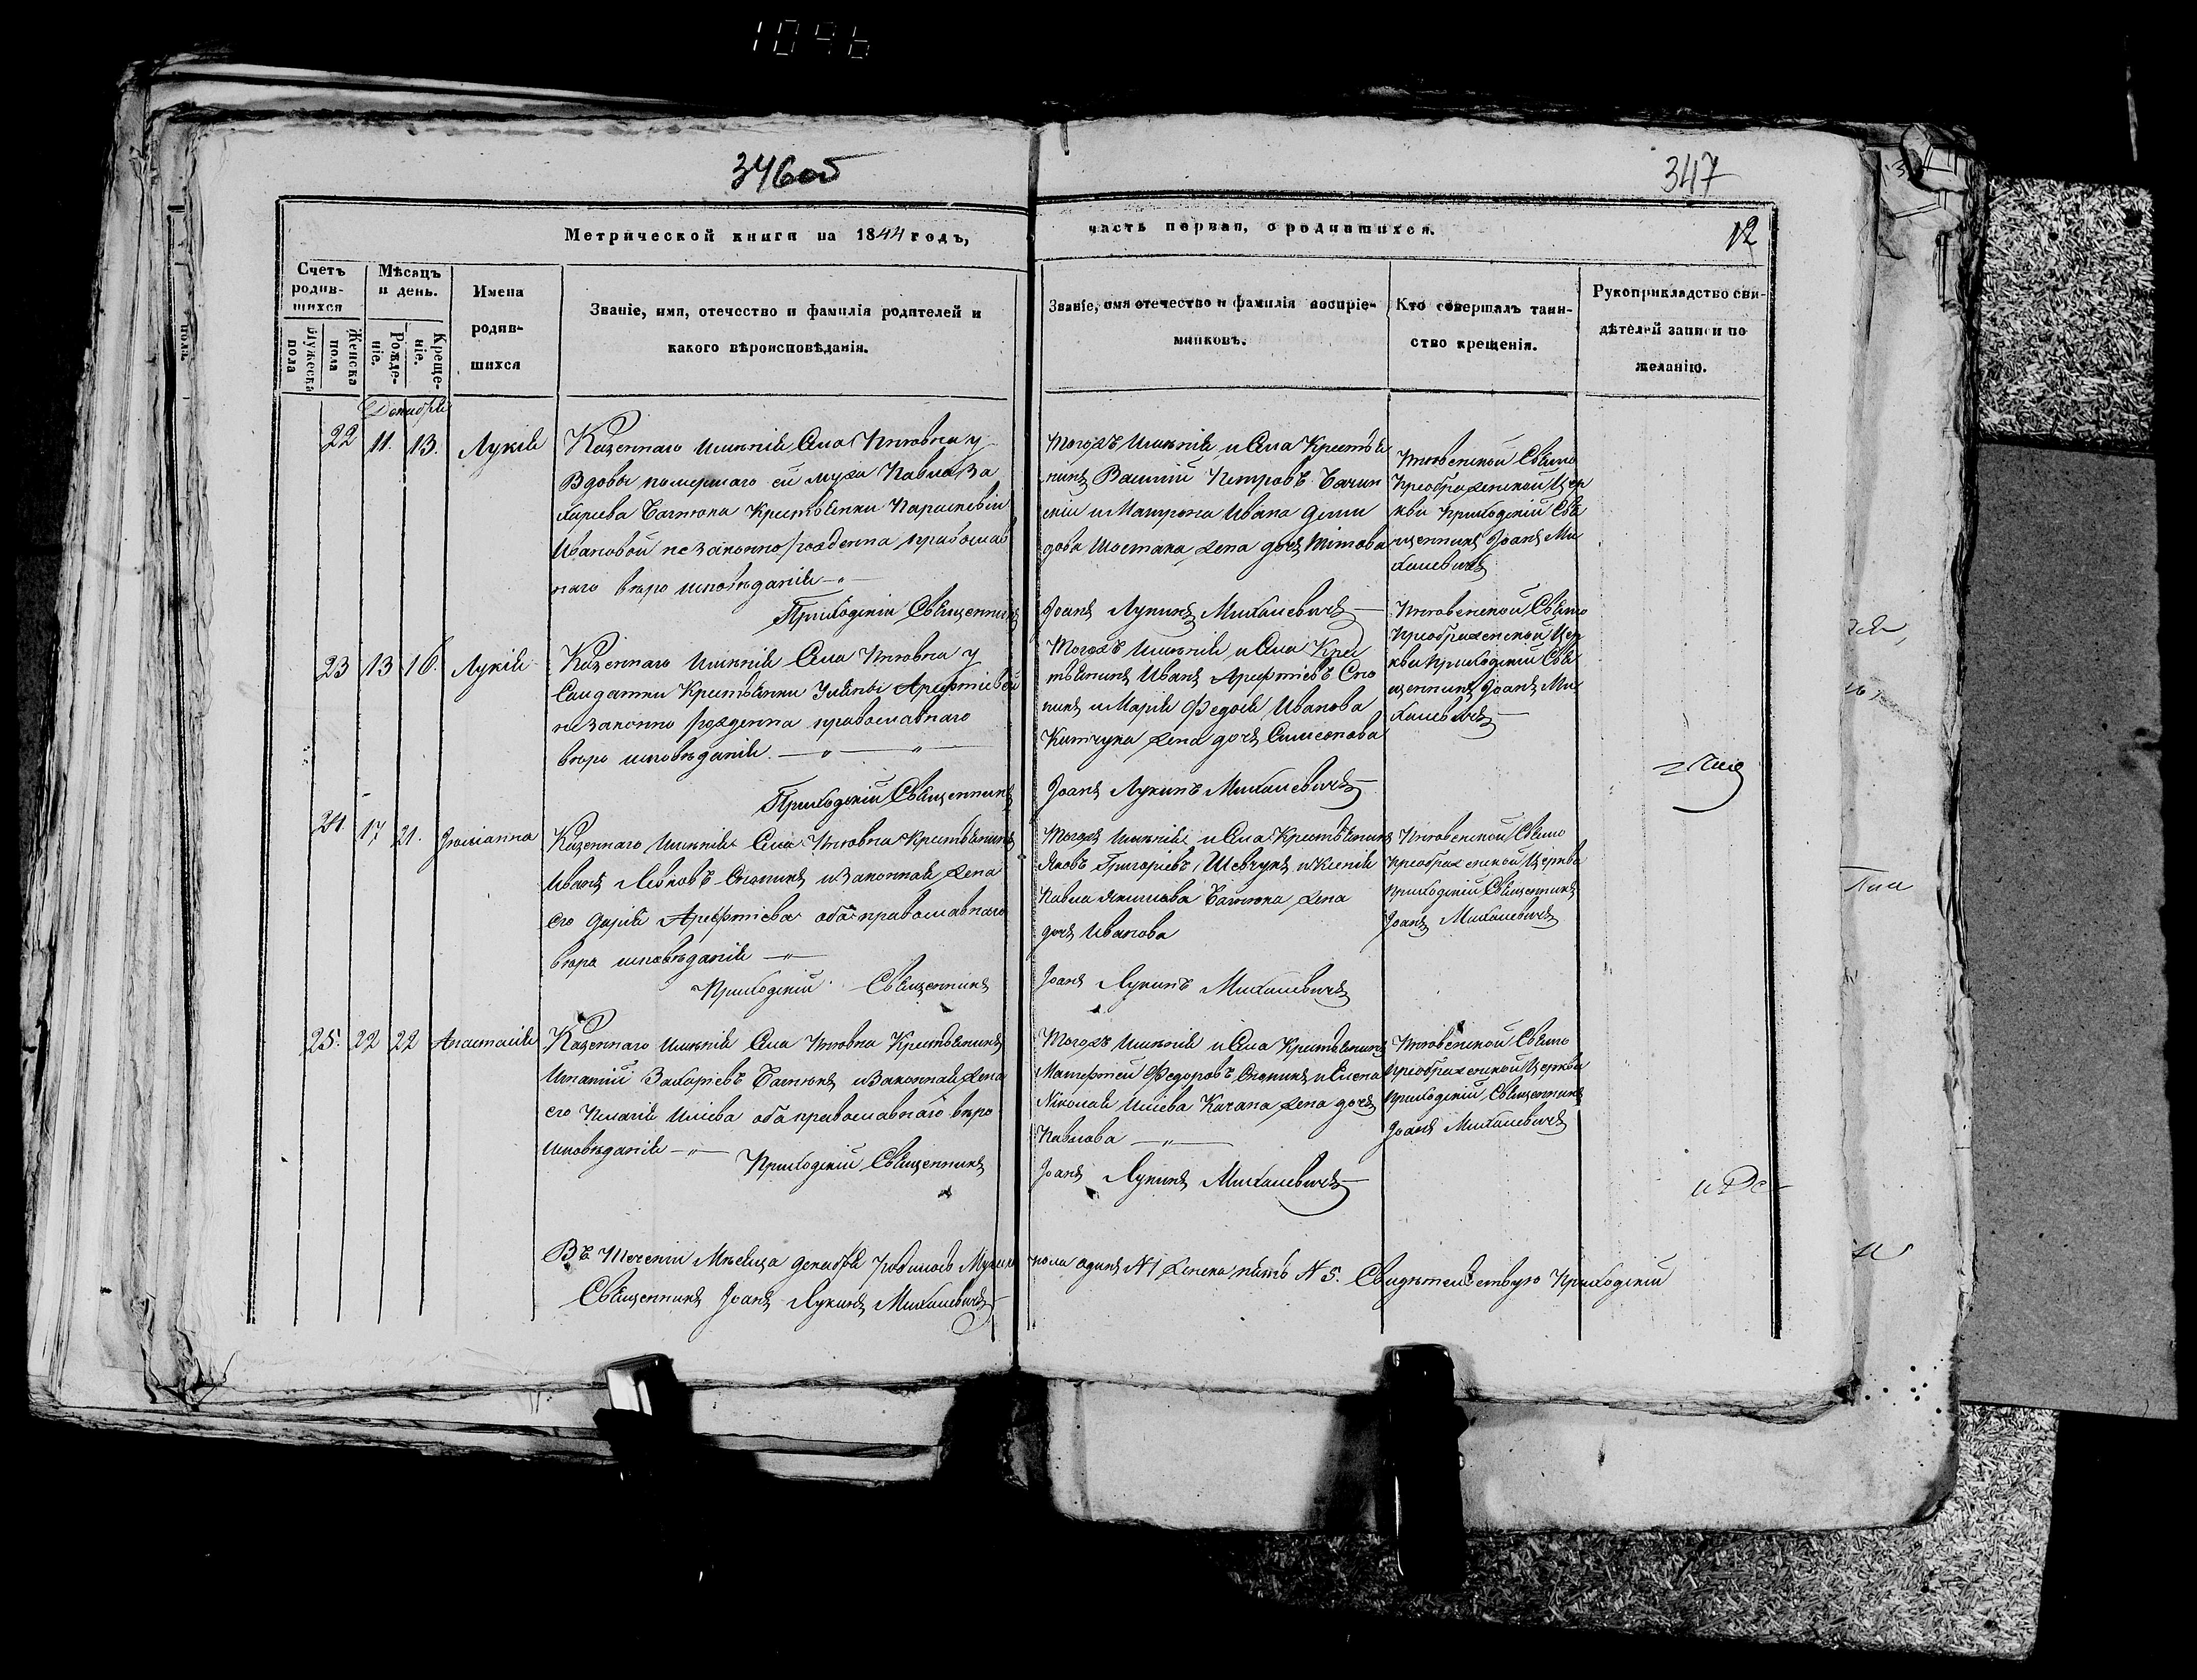 1046
346об
347
12
Метрической книги на 1844 годъ,
часть первая, о родившихся.
Счетъ родив-шихся
Мужеска пола
Женска пола
Мѣсяцъ и день.
Рожде-ніе.
Креще-ніе.
Имена родив-шихся
Званіе, имя, отчество и фамилія родителей и
какого вѣроисповѣданія.
Званіе, имя отечество и фамилія воспріе-
мниковъ.
Кто совершалъ таин-
ство крещенія.
Рукоприкладство сви-
дѣтелей записи по
желанію.
Декабря
22 11. 13. Лукія
Казеннаго имѣнія Села у
Вдовы помершаго ей мужа Павла За
харіева Батюка Крестьянки Параскевіи
Ивановой незаконнорожденна, православ
наго вѣро исповѣданія
Приходскій Священникъ
Тогожъ имѣнія и Села Крестья
нинъ Василій Петровъ
и Матрона Ивана Деми
дова Шостака жена дочь Титова
Іоанъ Лукинъ Михалевичъ
Свято
Преображенской Цер
кви Приходскій Свя
щенникъ Іоанъ Ми
халевичъ
23 13 16. Лукія
Казеннаго имѣнія Села у
Салдатки Крестьянки Уліяны Арефтіевой
незаконно рожденна православнаго
вѣро исповѣданія
Приходскій Священникъ
Тогожъ имѣнія и Села Кре
стьянинъ Иванъ Арефтіевъ
и Марія Федося Иванова
жена дочь Симеонова
Іоанъ Лукинъ Михалевичъ
Свято
Преображенской Цер
кви Приходскій Свя
щенникъ Іоанъ Ми
халевичъ
24. 17 21. Іуліанна
Казеннаго имѣнія Села Крестьянинъ
Иванъ и Законная жена
его Дарія Арефтіева оба православнаго
вѣро исповѣданія
Приходскій Священникъ
Тогожъ имѣнія и Села Крестьянинъ
Яковъ Григоріевъ Шевчукъ и Ксенія
Павла Батюка жена
дочь Иванова
Іоанъ Лукинъ Михалевичъ
Свято
преображенской Церкви
приходскій Священникъ
Іоанъ Михалевичъ
25. 22 22 Анастасія
Казеннаго имѣнія Села Крестьянинъ
Игнатій Захаріевъ Батюкъ и Законная жена
его Иліева оба православнаго вѣро
исповѣданія
Приходскій Священникъ
Тогожъ имѣнія и Села Крестьянинъ
Матфтей Федоровъ и Елена
Николая Иліева Качана жена дочь
Павлова
Іоанъ Лукинъ Михалевичъ
Свято
преображенской Церкви
приходскій Священникъ
Іоанъ Михалевичъ
Въ теченіи Мѣсяца декабря родилось Мужска пола одинъ N 1 Женска пять N 5. Свидѣтельствую Приходскій
Священникъ Іоанъ Лукинъ Михалевичъ